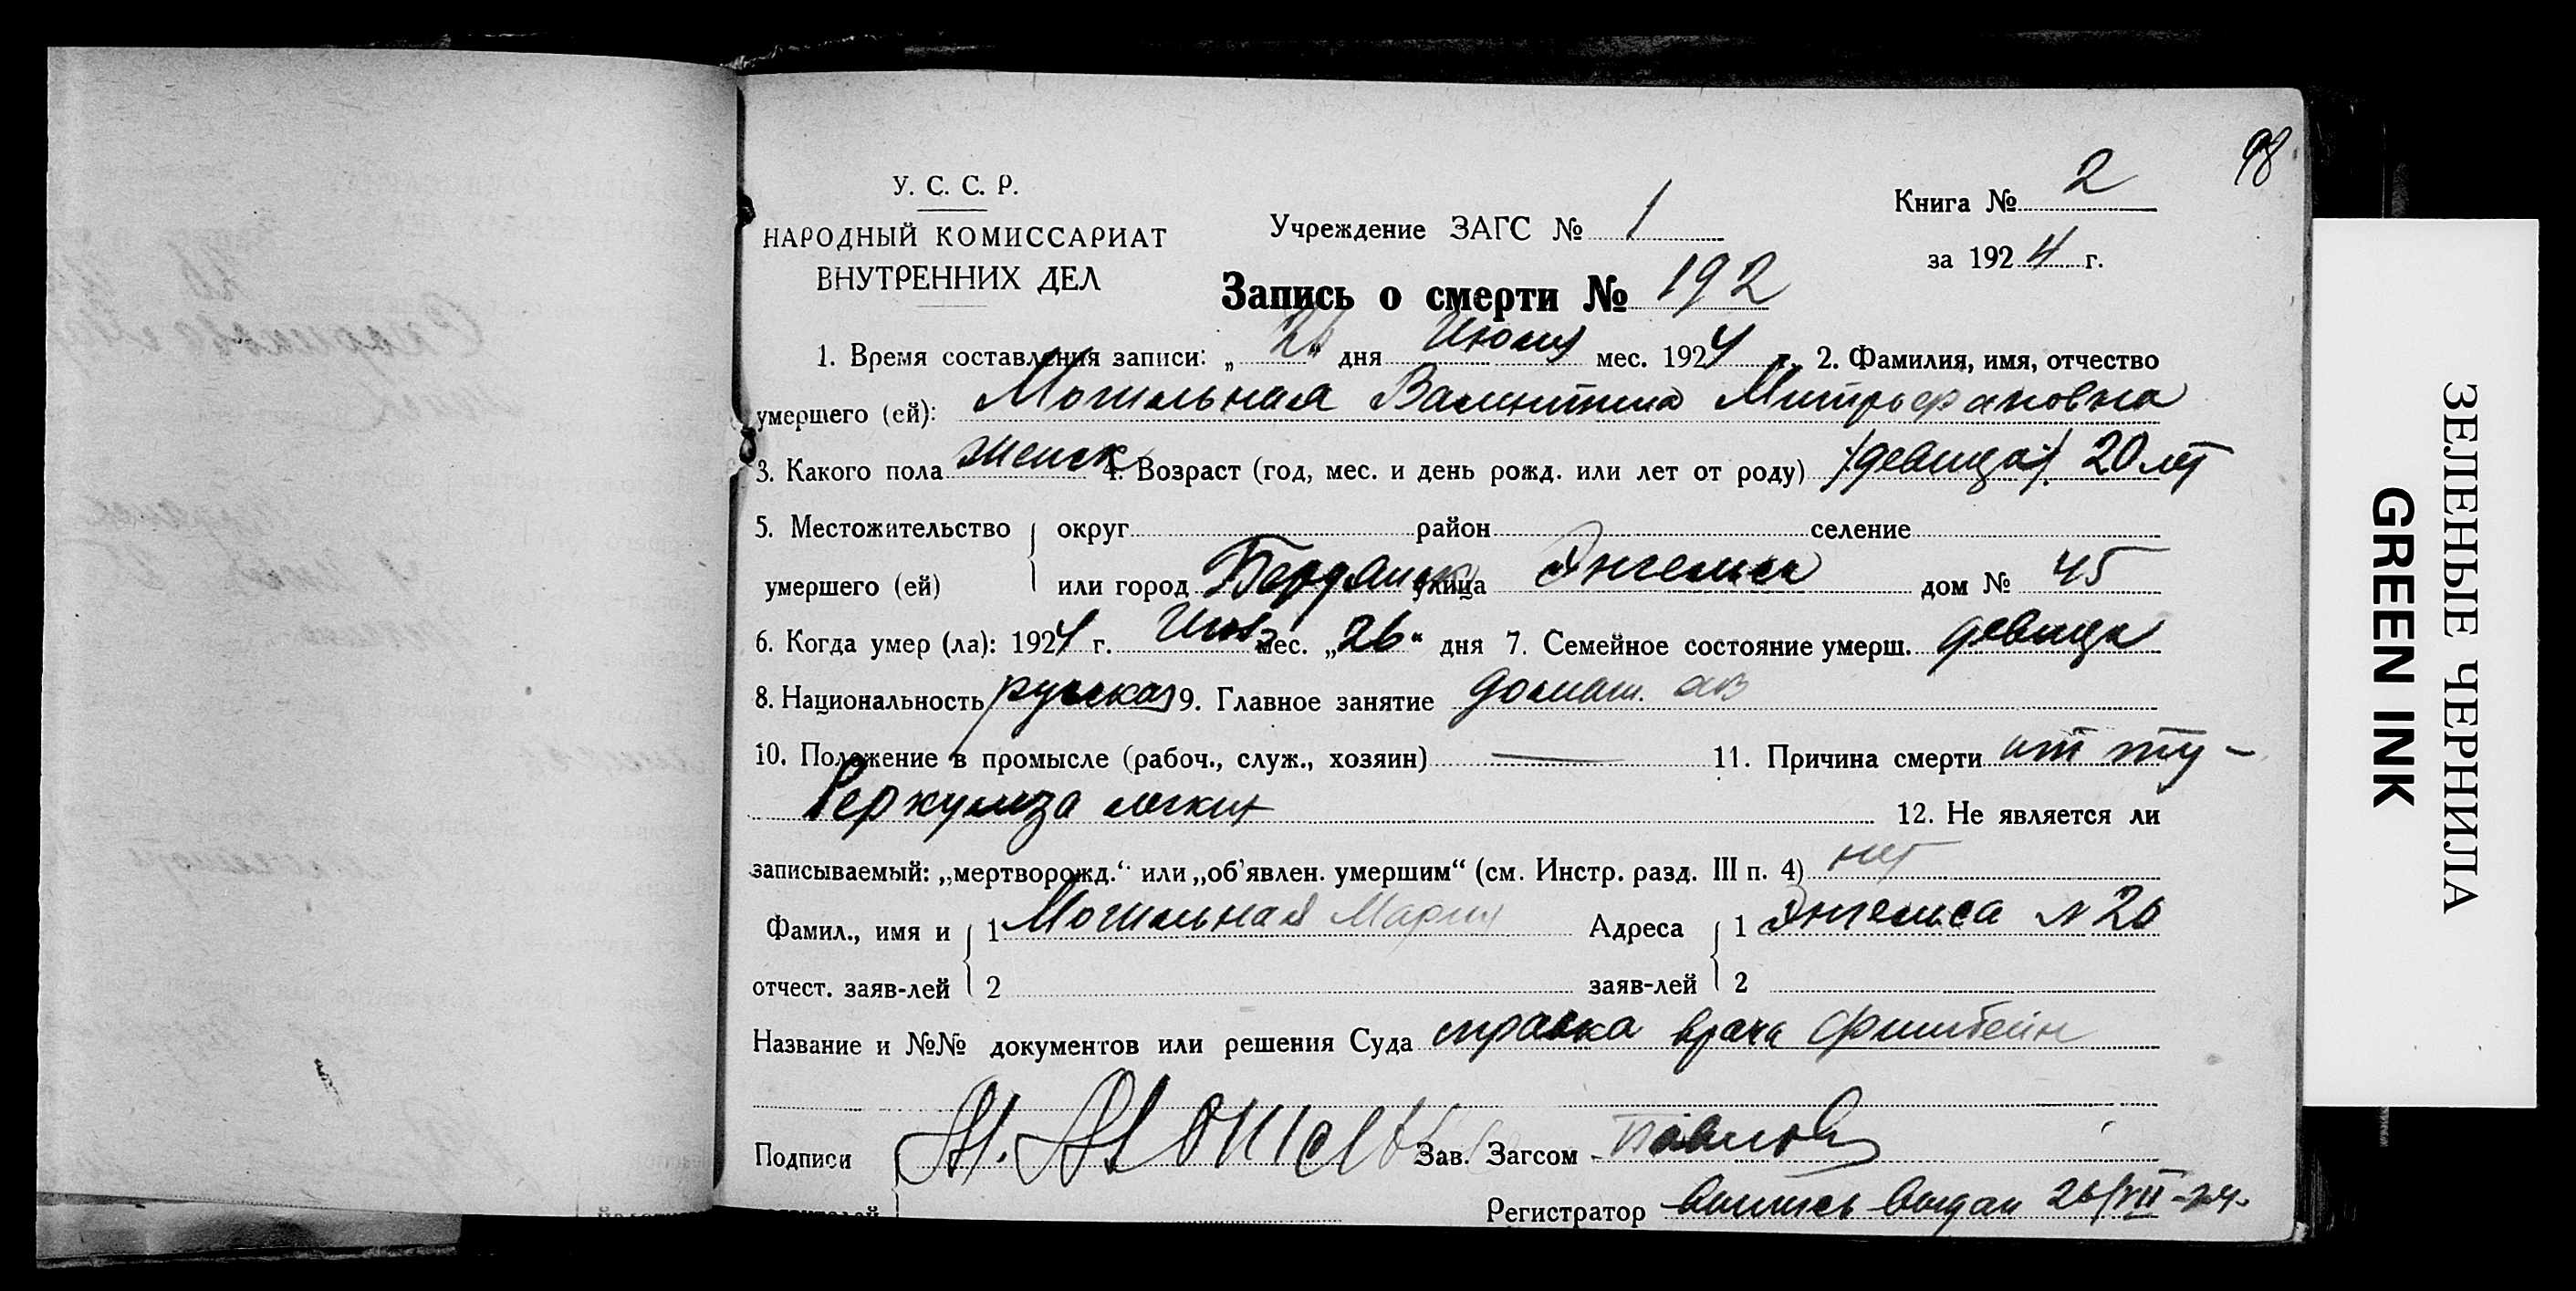 98
У. С. С. Р.
НАРОДНЫЙ КОМИССАРИАТ
ВНУТРЕННИХ ДЕЛ
Учреждение ЗАГС № 1
Книга № 2
за 1924 г.
Запись о смерти № 192
1. Время составления записи: „26“ дня Июля мес. 1924 г. 2. Фамилия, имя, отчество
умершего (ей): Могильная Валентина Митрофановна
3. Какого пола женск 4. Возраст (год, мес. и день рожд. или лет от роду) /девица/ 20 лет
5. Местожительство округ район селение
умершего (ей) или город Бердянск улица Энгельса дом № 45
6. Когда умер (ла): 1924 г. мес. „26“ дня 7. Семейное состояние умерш. девица
8. Национальность русская 9. Главное занятие домаш.
10. Положение в промысле (рабоч., служ., хозяин) — 11. Причина смерти от ту-
беркулеза легких 12. Не является ли
записываемый: „мертворожд.“ или „об'явлен. умершим“ (см. Инстр. разд. III п. 4) нет
Фамил., имя и 1 Могильная Мария Адреса 1 Энгельса № 26
отчест. заяв-лей 2 заяв-лей 2
Название и №№ документов или решения Суда справка врача Финштейн
Подписи М. Могиль Зав. Загсом Павлов
Регистратор 26/VII-24.
ЗЕЛЕНЫЕ ЧЕРНИЛА
GREEN INK